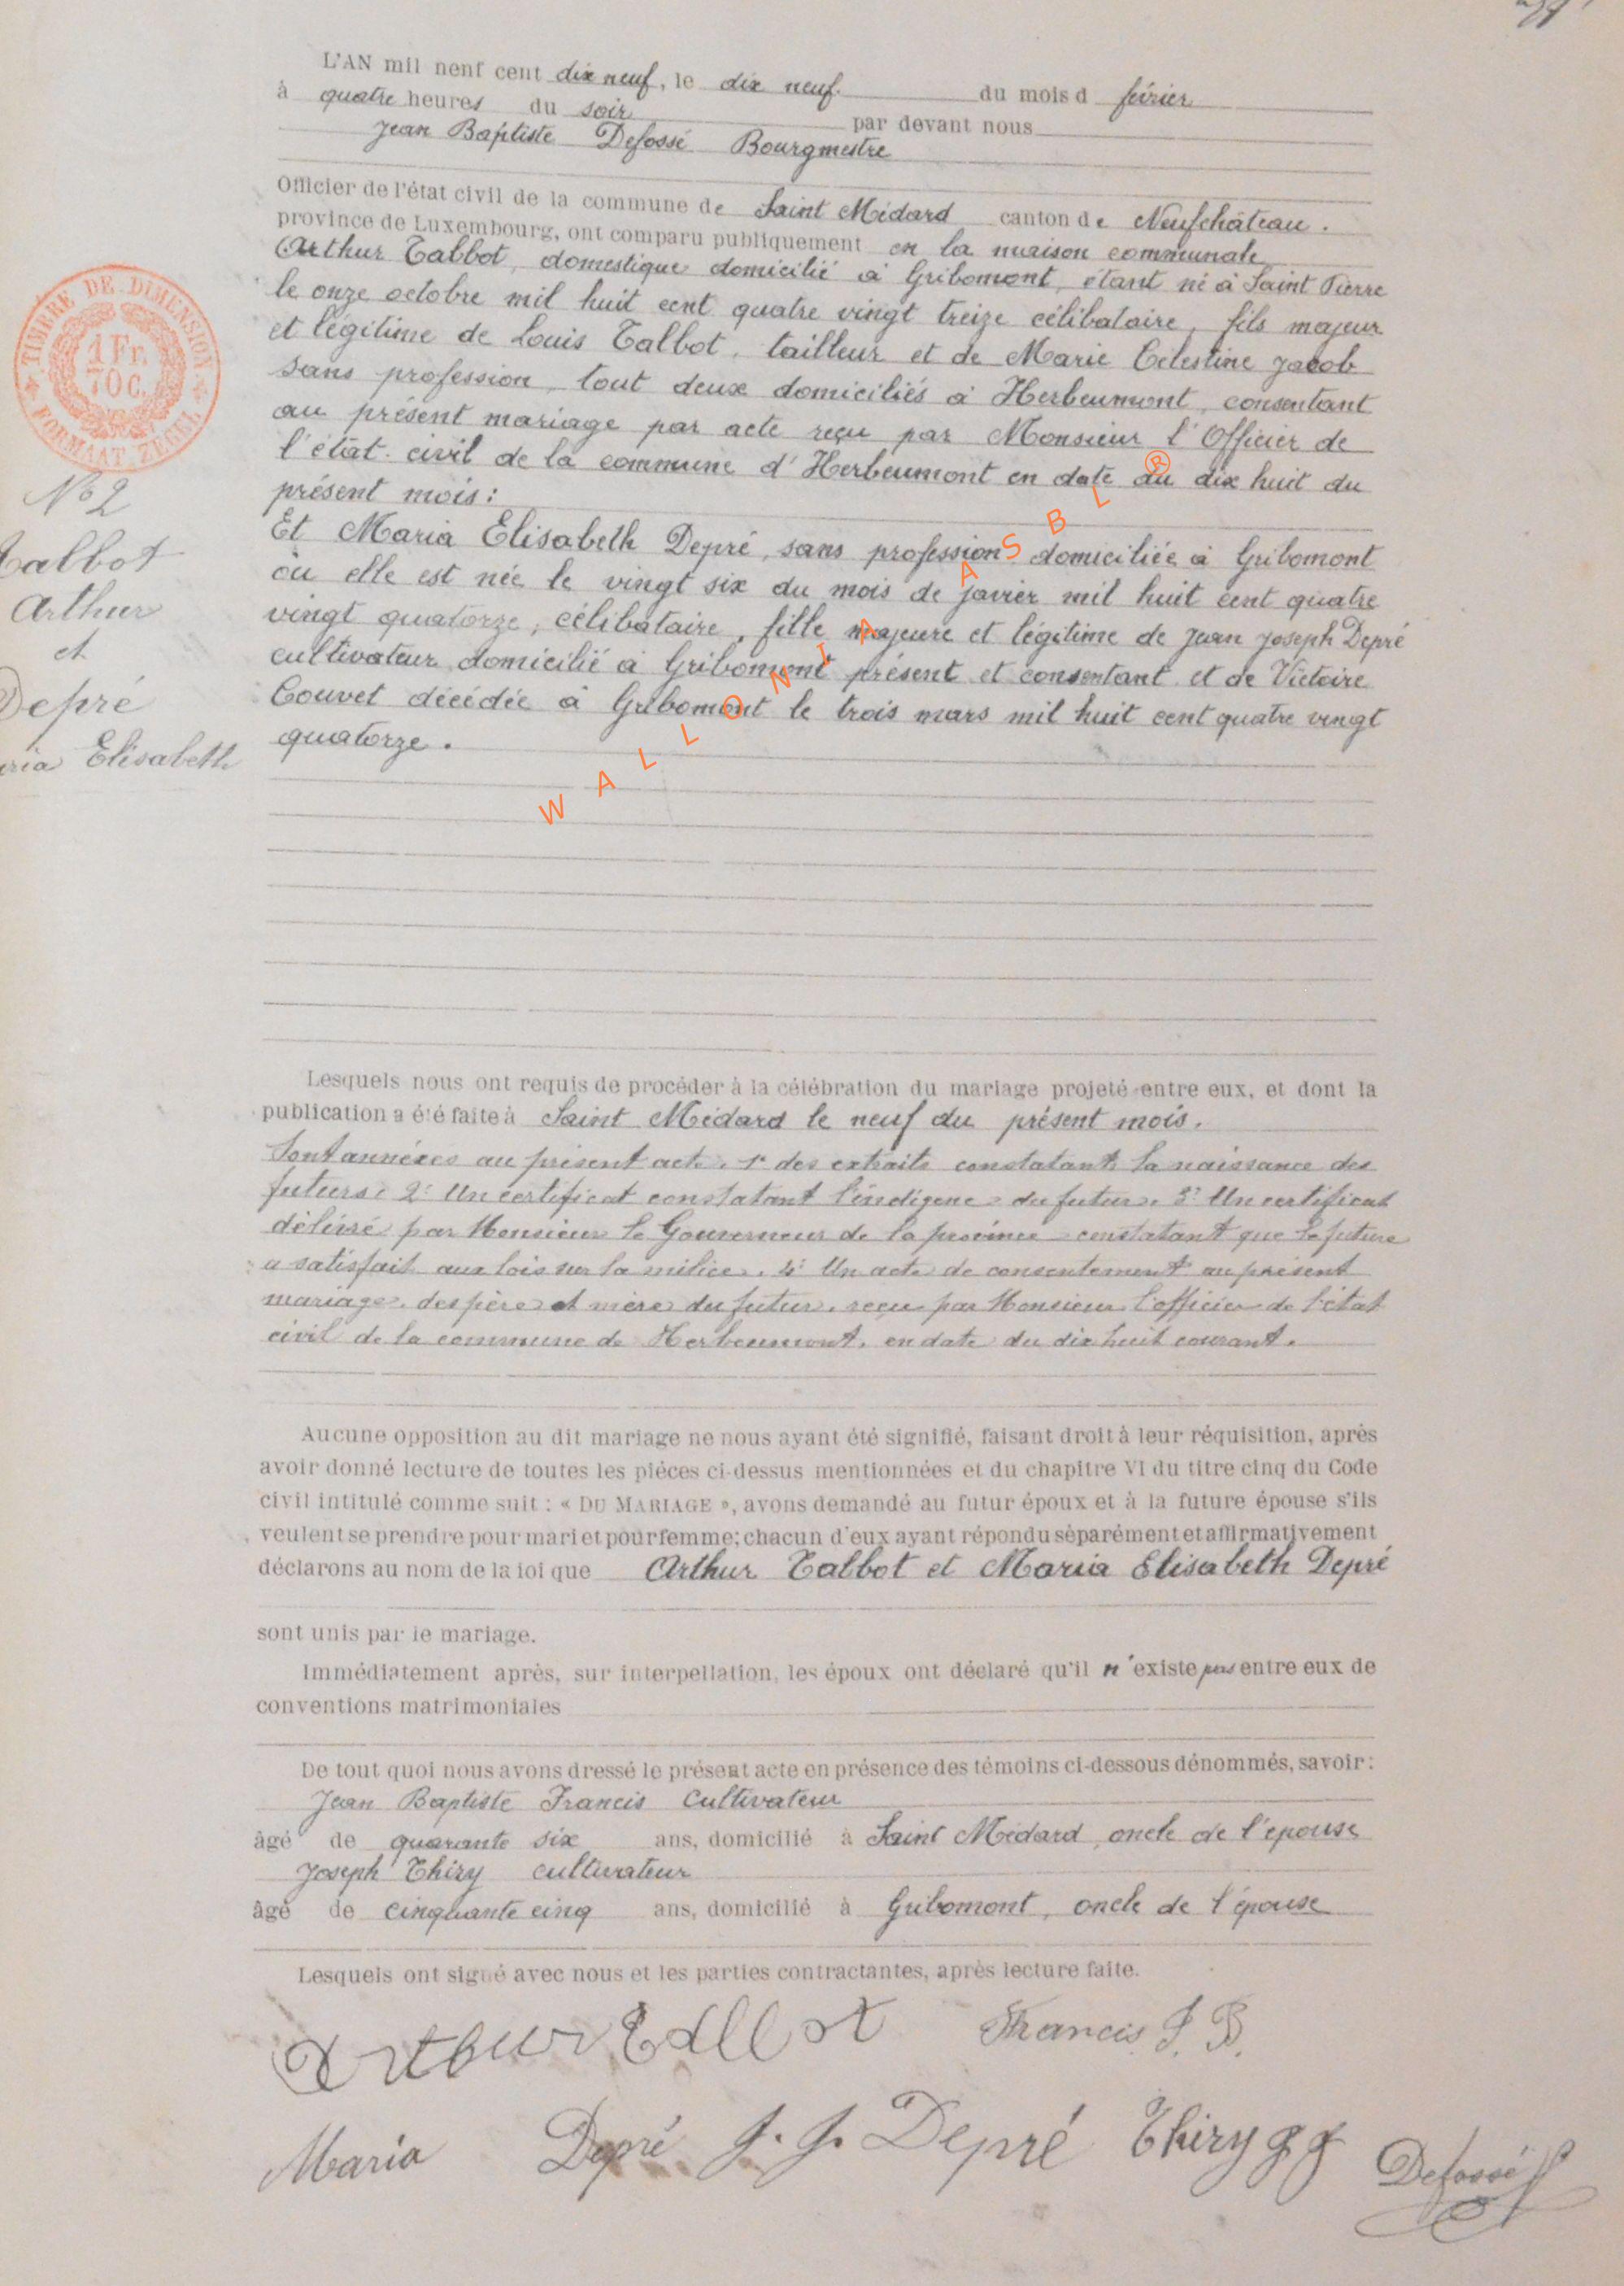 L'AN mil neuf cent dix neuf, le dix neuf. du mois d février
à quatre heures du soir par devant nous
Jean Baptiste Defossé Bourgmestre
Officier de l'état civil de la commune de Saint Médard canton de Neufchâteau.
province de Luxembourg, ont comparu publiquement en la maison communale
Arthur Talbot, domestique domicilié à Gribomont, étant né à Saint Pierre
le onze octobre mil huit cent quatre vingt treize célibataire, fils majeur
et légitime de Louis Talbot, tailleur et de Marie Célestine Jacob
sans profession, tout deux domiciliés à Herbeumont, consentant
au présent mariage par acte reçu par Monsieur l'Officier de
l'état civil de la commune d'Herbeumont en date du dix huit du
présent mois:
Et Maria Elisabeth Depré, sans profession domiciliée à Gribomont
où elle est née le vingt six du mois de javier mil huit cent quatre
vingt quatorze, célibataire, fille majeure et légitime de Jean Joseph Depré
cultivateur domicilié à Gribomont présent et consentant et de Victoire
Couvet décédée à Gribomont le trois mars mil huit cent quatre vingt
quatorze.
TIMBRE DE DIMENSION
1 Fr.
70 C.
FORMAAT ZEGEL
No 2
Talbot
Arthur
et
Depré
ria Elisabeth
WALLONIA ASBL ®
Lesquels nous ont requis de procéder à la célébration du mariage projeté entre eux, et dont la
publication a été faite à Saint Médard le neuf du présent mois.
Sont annéxés au présent acte. 1° des extraits constatants la naissance des
futurs; 2° Un certificat constatant l'indigence du futur. 3° Un certificat
délivré par Monsieur le Gouverneur de la province constatant que le future
a satisfait aux lois sur la milice. 4° Un acte de consentement au présent
mariage, des père et mère du futur, reçu par Monsieur l'officier de l'état
civil de la commune de Herbeumont, en date du dix huit courant.
Aucune opposition au dit mariage ne nous ayant été signifié, faisant droit à leur réquisition, après
avoir donné lecture de toutes les pièces ci-dessus mentionnées et du chapitre VI du titre cinq du Code
civil intitulé comme suit : « DU MARIAGE », avons demandé au futur époux et à la future épouse s'ils
veulent se prendre pour mari et pour femme; chacun d'eux ayant répondu séparément et affirmativement
déclarons au nom de la loi que Arthur Talbot et Maria Elisabeth Depré
sont unis par le mariage.
Immédiatement après, sur interpellation, les époux ont déclaré qu'il n'existe pas entre eux de
conventions matrimoniales
De tout quoi nous avons dressé le présent acte en présence des témoins ci-dessous dénommés, savoir:
Jean Baptiste Francis Cultivateur
âgé de quarante six ans, domicilié à Saint Médard, oncle de l'épouse
Joseph Thiry cultivateur
âgé de cinquante cinq ans, domicilié à Gribomont, oncle de l'épouse
Lesquels ont signé avec nous et les parties contractantes, après lecture faite.
Arthur Talbot Francis J. B.
Maria Depré J. J. Depré Thiry J J Defossé